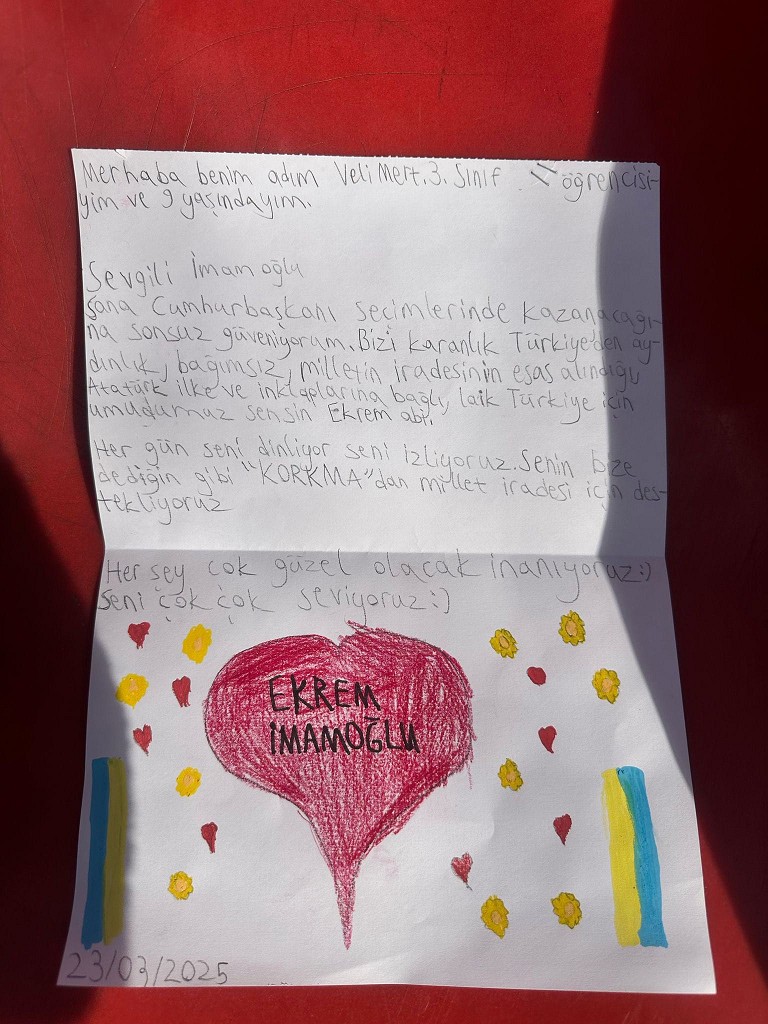 Merhaba benim adım Veli Mert. 3. Sınıf öğrencisi-
yim ve 9 yaşındayım.
Sevgili İmamoğlu
Sana Cumhurbaşkanı seçimlerinde kazanacağı-
na sonsuz güveniyorum. Bizi karanlık Türkiye'den ay-
dınlık, bağımsız, milletin iradesinin esas alındığı
Atatürk ilke ve inkılaplarına bağlı, laik Türkiye için
umudumuz sensin Ekrem abi.
Her gün seni dinliyor seni izliyoruz. Senin bize
dediğin gibi "KORKMA"dan millet iradesi için des-
tekliyoruz
Her şey çok güzel olacak inanıyoruz:)
Seni çok çok seviyoruz:)
EKREM
İMAMOĞLU
23/03/2025